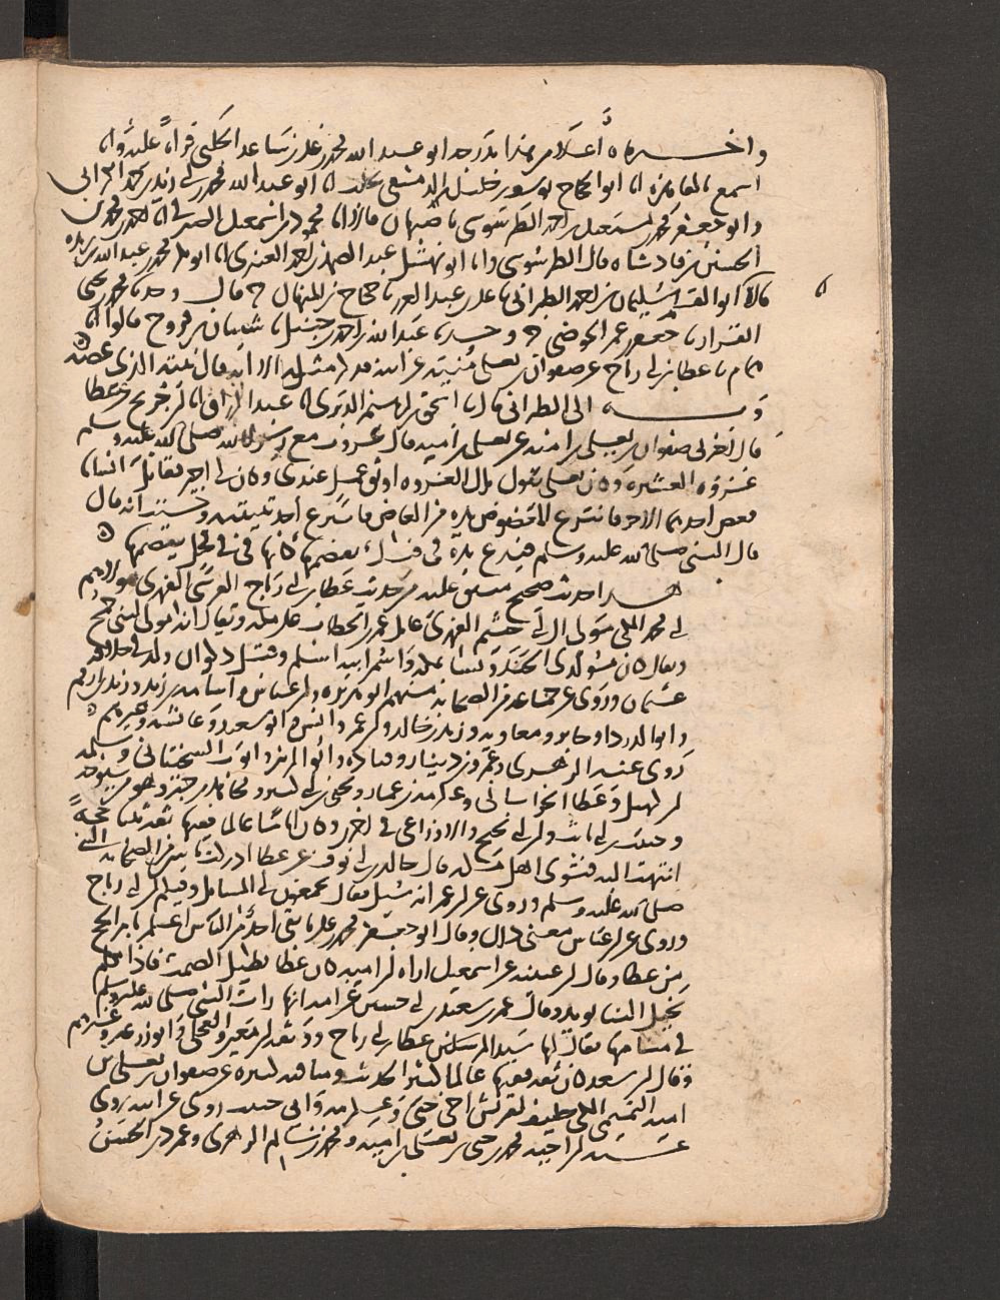 واخبرناه أعلا من هذا بدرجة ابو عبد الله محمد بن علي بن ساعد الحلبي قراءة عليه وانا
اسمع بالقاهرة انا ابو الحجاج يوسف بن خليل الدمشقي انا ابو عبد الله محمد بن ابي زيد بن حمد الكراني
وابو جعفر محمد بن اسمعيل بن احمد الطرسوسي باصبهان قالا انا محمود بن اسمعيل الصيرفي انا احمد بن محمد بن
الحسين بن فاذشاه قال الطرسوسي وانا ابو نهشل عبد الصمد بن احمد العنبري انا ابو بكر محمد بن عبد الله بن ريذه
قالا انا ابو القسم سليمان بن احمد الطبراني نا علي بن عبد العزيز نا حجاج بن المنهال ح قال وحدثنا محمد بن يحيى
القزاز نا حفص بن عمر الحوضي ح وحدثنا عبد الله بن احمد بن حنبل نا شيبان بن فروخ قالوا نا
همام نا عطا بن ابي رباح عن صفوان بن يعلى بن منية عن ابيه مثله الا انه قال ثنيته الذي عضه
وبه الى الطبراني قال نا اسحق بن ابرهيم الدبري انا عبد الرزاق انا ابن جريج اخبرني عطا
قال اخبرني صفوان بن يعلى بن امية عن يعلى بن امية قال غزوت مع رسول الله صلى الله عليه وسلم
غزوة العسيرة وكان يعلى يقول تلك الغزوة اوثق عمل عندي وكان لي اجير فقاتل انسانا
فعض احدهما الاخر فانتزع المعضوض يده من العاض فانتزع احد ثنيتيه وحسبت انه قال
قال النبي صلى الله عليه وسلم فيدع يده في فيك تقضمها كانها في في فحل يقضمها
هذا حديث صحيح متفق عليه من حديث عطا بن ابي رباح القرشي الفهري مولاهم
ابي محمد المكي مولى ال ابي خثيم الفهري عامل عمر بن الخطاب على مكة ويقال انه مولى لبني جمح
ويقال كان من مولدي الجند ونشا بمكة واسم ابيه اسلم ولد في خلافة
عثمان وروى عن جماعة من الصحابة منهم ابو هريرة وابن عباس واسامة بن زيد وزيد بن ارقم
وابو الدرداء وجابر ومعاوية وزيد بن خالد وابن عمر وانس وابو سعيد وعائشة وغيرهم
روى عنه الزهري وعمرو بن دينار وقتادة وابو الزبير وايوب السختياني وسلمة
ابن كهيل وعطا الخراساني وعكرمة بن عمار ويحيى بن ابي كثير ومجاهد بن جبر وهو من شيوخه
وحبيب بن ابي ثابت وابن ابي نجيح والاوزاعي في اخرين وكان اماما عالما فقيها ثقة ثبتا حجة
انتهت اليه فتوى اهل مكة قال خالد بن ابي نوف عن عطا ادركت مائتين من اصحاب النبي
صلى الله عليه وسلم وروي عن ابن عمر انه سئل فقال تجمعون لي المسائل وفيكم ابن ابي رباح
وروي عن ابن عباس معنى ذلك وقال ابو جعفر محمد بن علي ما بقي احد من الناس اعلم بامر الحج
من عطا وقال ابن عيينة عن اسمعيل اراه ابن امية كان عطا يطيل الصمت فاذا تكلم
يخيل الينا انه يؤيد وقال عمر بن سعيد بن ابي حسين عن امه انها رات النبي صلى الله عليه وسلم
في منامها فقال لها سيد المسلمين عطا بن ابي رباح ووثقه ابن معين والعجلي وابو زرعة وغيرهم
وقال ابن سعد كان ثقة فقيها عالما كثير الحديث ومناقبه كثيرة عن صفوان بن يعلى بن
امية التميمي المكي حليف لقريش اخي حيي وعبد الرحمن روى عن ابيه روى
عنه ابن اخيه محمد بن حيي بن يعلى بن امية ومحمد بن مسلم الزهري وعمرو بن الحسن